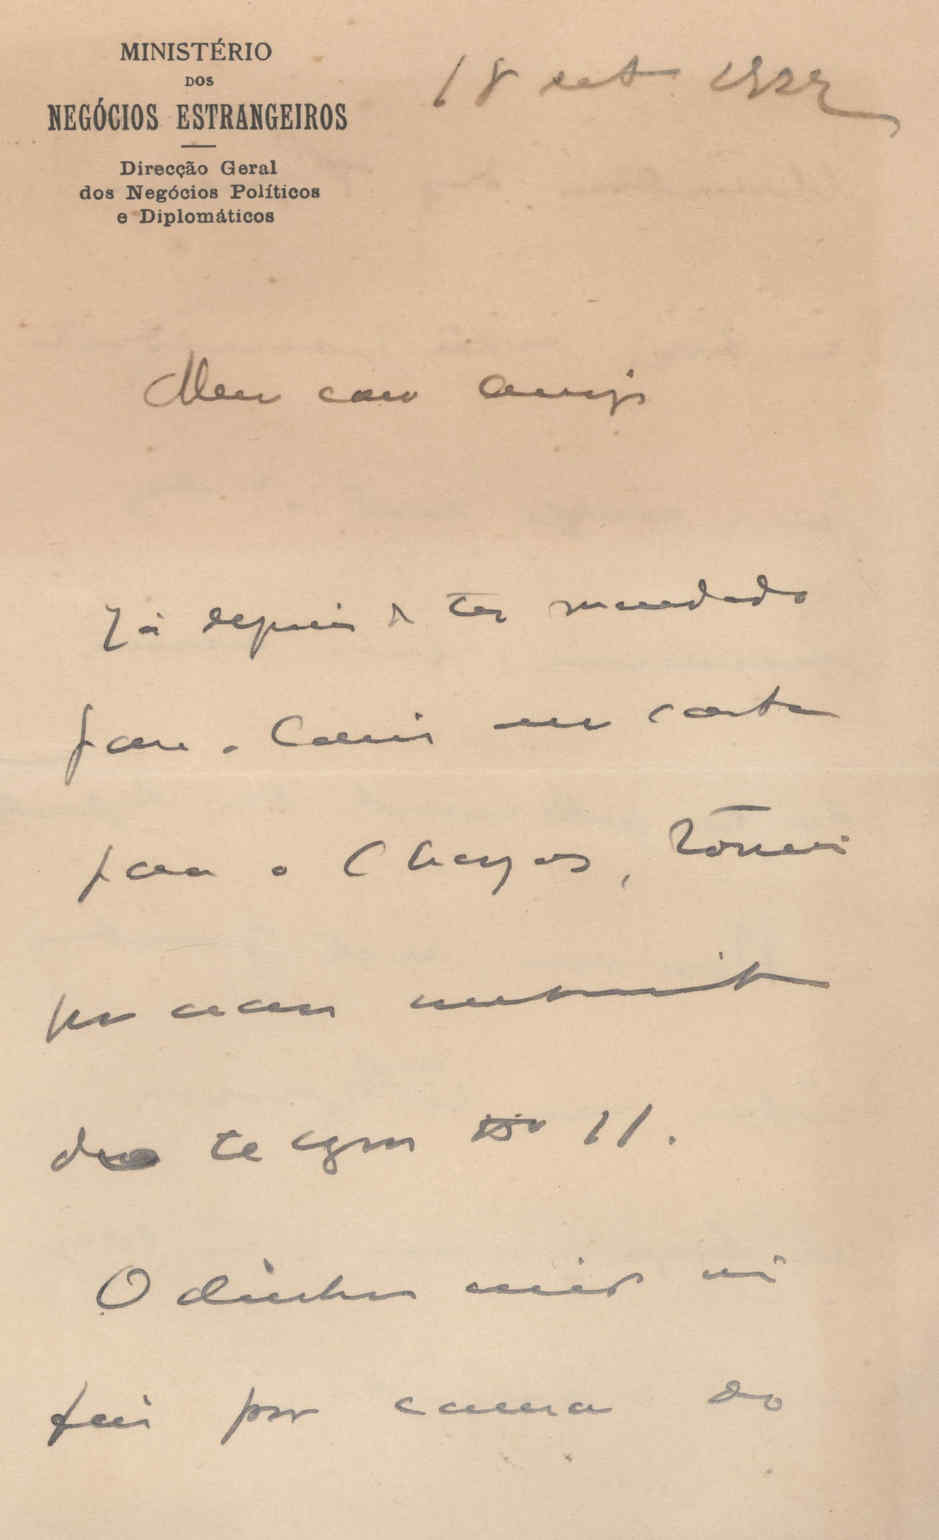 MINISTÉRIO
DOS
NEGÓCIOS ESTRANGEIROS
Direcção Geral
dos Negócios Políticos
e Diplomáticos
18 set 1922
Meu caro amigo
Já depois de ter mandado
para o uma carta
para o Chagas,
por acaso
do 11.
O dinheiro não
foi por causa do